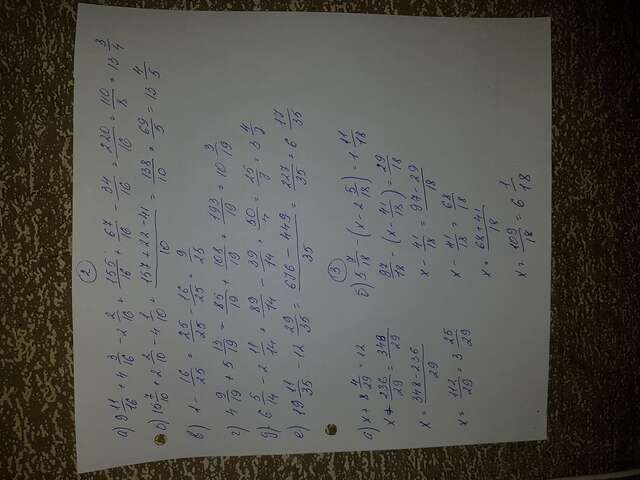 2
а) 9 11/16 + 4 3/16 - 2 2/16 = 155/16 + 67/16 - 34/16 = 220/16 = 110/8 = 13 3/4
б) 15 7/10 + 2 2/10 - 4 1/10 = 157+22-41/10 = 138/10 = 69/5 = 13 4/5
в) 1 - 16/25 = 25/25 - 16/25 = 9/25
г) 4 9/19 + 5 13/19 = 85/19 + 108/19 = 193/19 = 10 3/19
д) 6 5/14 - 2 11/14 = 89/14 - 39/14 = 50/14 = 25/7 = 3 4/7
е) 19 11/35 - 12 29/35 = 676-449/35 = 227/35 = 6 17/35
3
а) x + 8 4/29 = 12
x + 236/29 = 348/29
x = 348-236/29
x = 112/29 = 3 25/29
б) 5 7/18 - (x - 2 5/18) = 1 11/18
97/18 - (x - 41/18) = 29/18
x - 41/18 = 97-29/18
x - 41/18 = 68/18
x = 68+41/18
x = 109/18 = 6 1/18